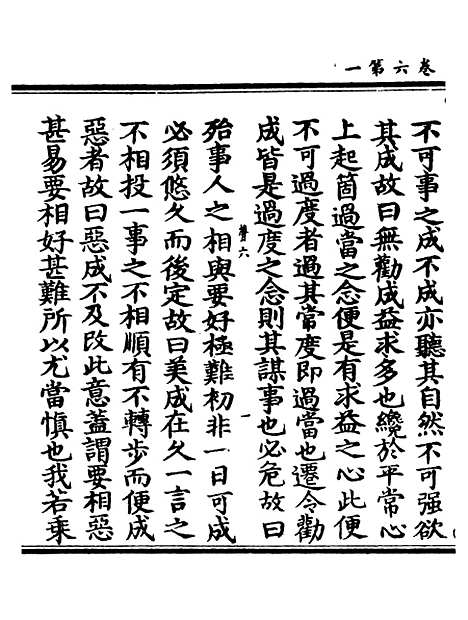 卷六第一
不可事之成不成亦聽其自然不可强欲
其成故曰無勸成益求多也纔於平常心
上起箇過當之念便是有求益之心此便
不可過度者過其常度即過當也遷令勸
成皆是過度之念則其謀事也必危故曰
殆事人之相與要好極難初非一日可成
必須悠久而後定故曰美成在久一言之
不相投一事之不相順有不轉步而便成
惡者故曰惡成不及改此意蓋謂要相惡
甚易要相好甚難所以尤當慎也我若乘